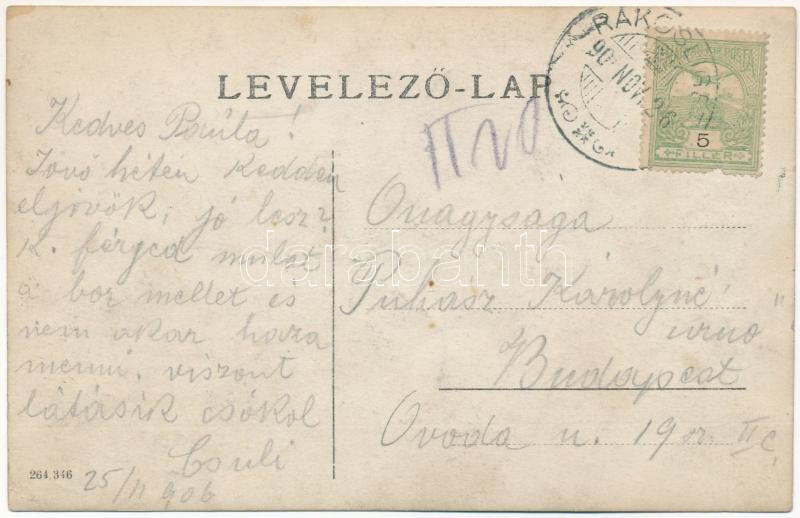 LEVELEZŐ-LAP
RÁKOS
906 NOV. 26
5
FILLÉR
Kedves Paula!
Jövő héten kedden
eljövök, jó lesz?
k. férjed mulat
a bor mellet és
nem akar haza
menni. viszont
látásik csókol
25/11 906
264.346
Onagysaga
Puhász Károlyné
urnő
Budapest
Ovoda u. 19 sz. II
darabanth